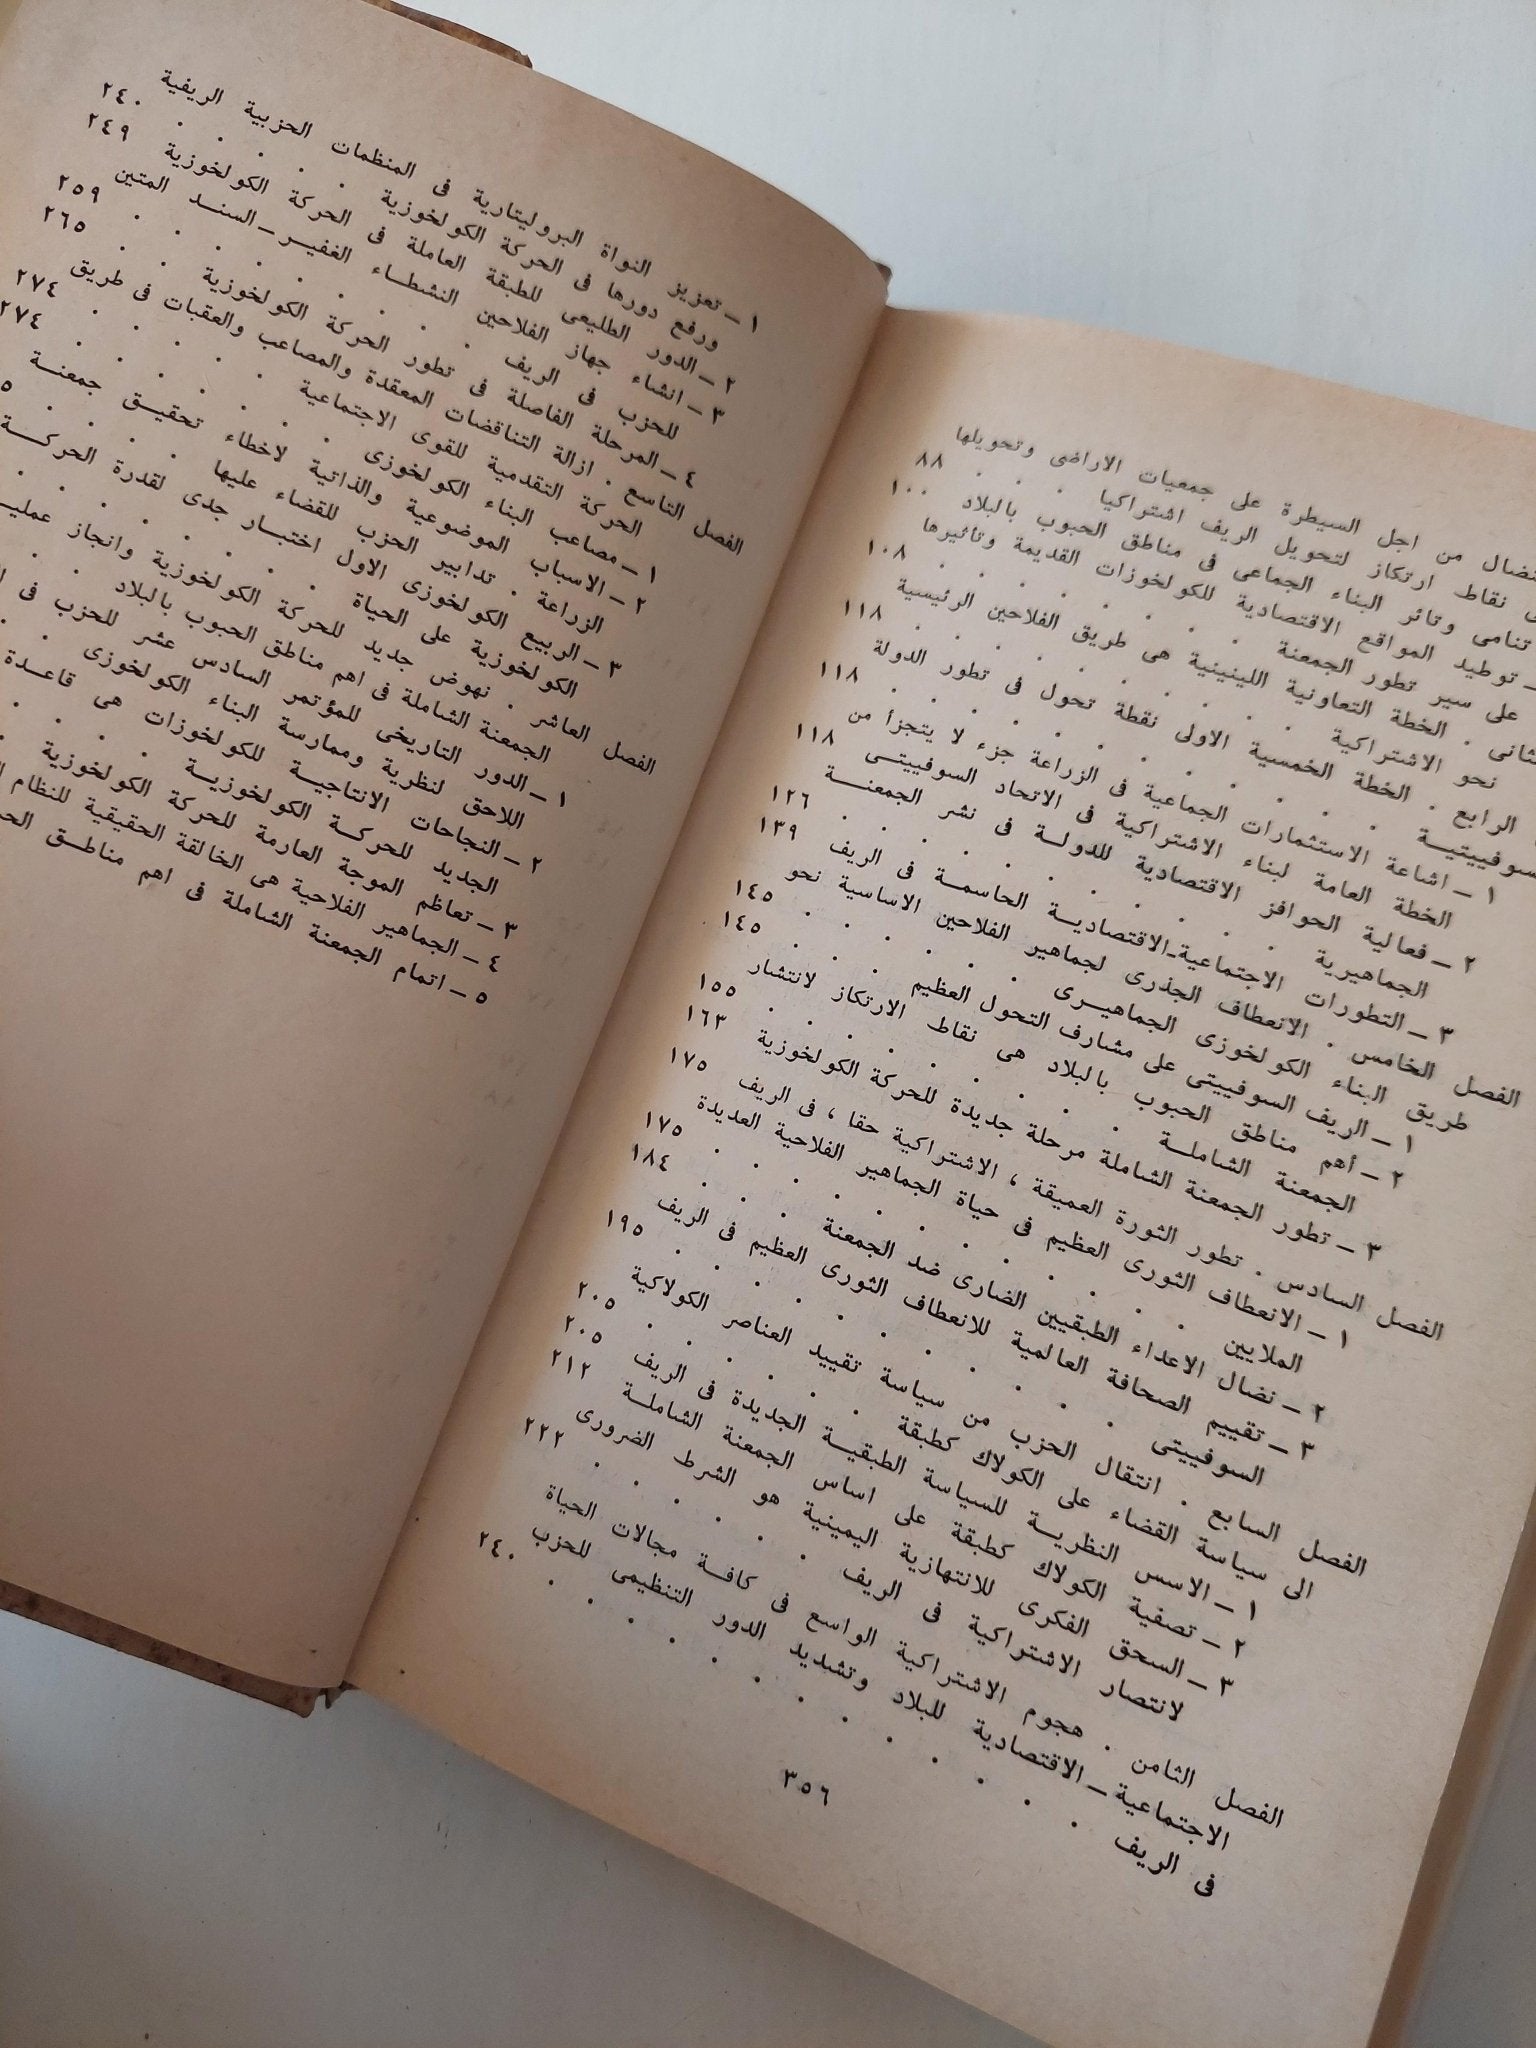 نضال من اجل السيطرة على جمعيات الاراضى وتحويلها
نقاط ارتكاز لتحويل الريف اشتراكيا . . ٨٨
تنامى وتائر البناء الجماعى فى مناطق الحبوب بالبلاد ١٠٠
توطيد المواقع الاقتصادية للكولخوزات القديمة وتاثيرها
على سير تطور الجمعنة . . . . . ١٠٨
. الخطة التعاونية اللينينية هى طريق الفلاحين الرئيسية
نحو الاشتراكية . . . . . . ١١٨
الرابع . الخطة الخمسية الاولى نقطة تحول فى تطور الدولة
السوفييتية . . . . . . . ١١٨
١ – اشاعة الاستثمارات الجماعية فى الزراعة جزء لا يتجزأ من
الخطة العامة لبناء الاشتراكية فى الاتحاد السوفييتى ١١٨
٢ – فعالية الحوافز الاقتصادية للدولة فى نشر الجمعنة
الجماهيرية . . . . . . . ١٢٦
٣ – التطورات الاجتماعية–الاقتصادية الحاسمة فى الريف ١٣٩
الفصل الخامس . الانعطاف الجذرى لجماهير الفلاحين الاساسية نحو
طريق البناء الكولخوزى الجماهيرى . . . . ١٤٥
١ – الريف السوفييتى على مشارف التحول العظيم . . ١٤٥
٢ – أهم مناطق الحبوب بالبلاد هى نقاط الارتكاز لانتشار
الجمعنة الشاملة . . . . . . ١٥٥
٣ – تطور الجمعنة الشاملة مرحلة جديدة للحركة الكولخوزية ١٦٣
الفصل السادس . تطور الثورة العميقة ، الاشتراكية حقا ، فى الريف ١٧٥
١ – الانعطاف الثورى العظيم فى حياة الجماهير الفلاحية العديدة
الملايين . . . . . . . ١٧٥
٢ – نضال الاعداء الطبقيين الضارى ضد الجمعنة . . ١٨٤
٣ – تقييم الصحافة العالمية للانعطاف الثورى العظيم فى الريف
السوفييتى . . . . . . . ١٩٥
الفصل السابع . انتقال الحزب من سياسة تقييد العناصر الكولاكية
الى سياسة القضاء على الكولاك كطبقة . . . . ٢٠٥
١ – الاسس النظرية للسياسة الطبقية الجديدة فى الريف ٢٠٥
٢ – تصفية الكولاك كطبقة على اساس الجمعنة الشاملة ٢١٢
٣ – السحق الفكرى للانتهازية اليمينية هو الشرط الضرورى
لانتصار الاشتراكية فى الريف . . . . ٢٢٢
الفصل الثامن . هجوم الاشتراكية الواسع فى كافة مجالات الحياة
الاجتماعية – الاقتصادية للبلاد وتشديد الدور التنظيمى للحزب
فى الريف . . . . . . . . ٢٤٠
٣٥٦
١ – تعزيز النواة البروليتارية فى المنظمات الحزبية الريفية
ورفع دورها فى الحركة الكولخوزية . . . ٢٤٠
٢ – الدور الطليعى للطبقة العاملة فى الحركة الكولخوزية ٢٤٩
٣ – انشاء جهاز الفلاحين النشطاء الغفير – السند المتين
للحزب فى الريف . . . . . . ٢٥٩
٤ – المرحلة الفاصلة فى تطور الحركة الكولخوزية . . ٢٦٥
الفصل التاسع . ازالة التناقضات المعقدة والمصاعب والعقبات فى طريق
الحركة التقدمية للقوى الاجتماعية . . . . ٢٧٤
١ – مصاعب البناء الكولخوزى . . . . . ٢٧٤
٢ – الاسباب الموضوعية والذاتية لاخطاء تحقيق جمعنة
الزراعة . تدابير الحزب للقضاء عليها . . .
٣ – الربيع الكولخوزى الاول اختبار جدى لقدرة الحركة
الكولخوزية على الحياة . . . . .
الفصل العاشر . نهوض جديد للحركة الكولخوزية وانجاز
الجمعنة الشاملة فى اهم مناطق الحبوب بالبلاد .
١ – الدور التاريخى للمؤتمر السادس عشر للحزب فى
اللاحق لنظرية وممارسة البناء الكولخوزى .
٢ – النجاحات الانتاجية للكولخوزات هى قاعدة
الجديد للحركة الكولخوزية . . .
٣ – تعاظم الموجة العارمة للحركة الكولخوزية
٤ – الجماهير الفلاحية هى الخالقة الحقيقية للنظام
٥ – اتمام الجمعنة الشاملة فى اهم مناطق